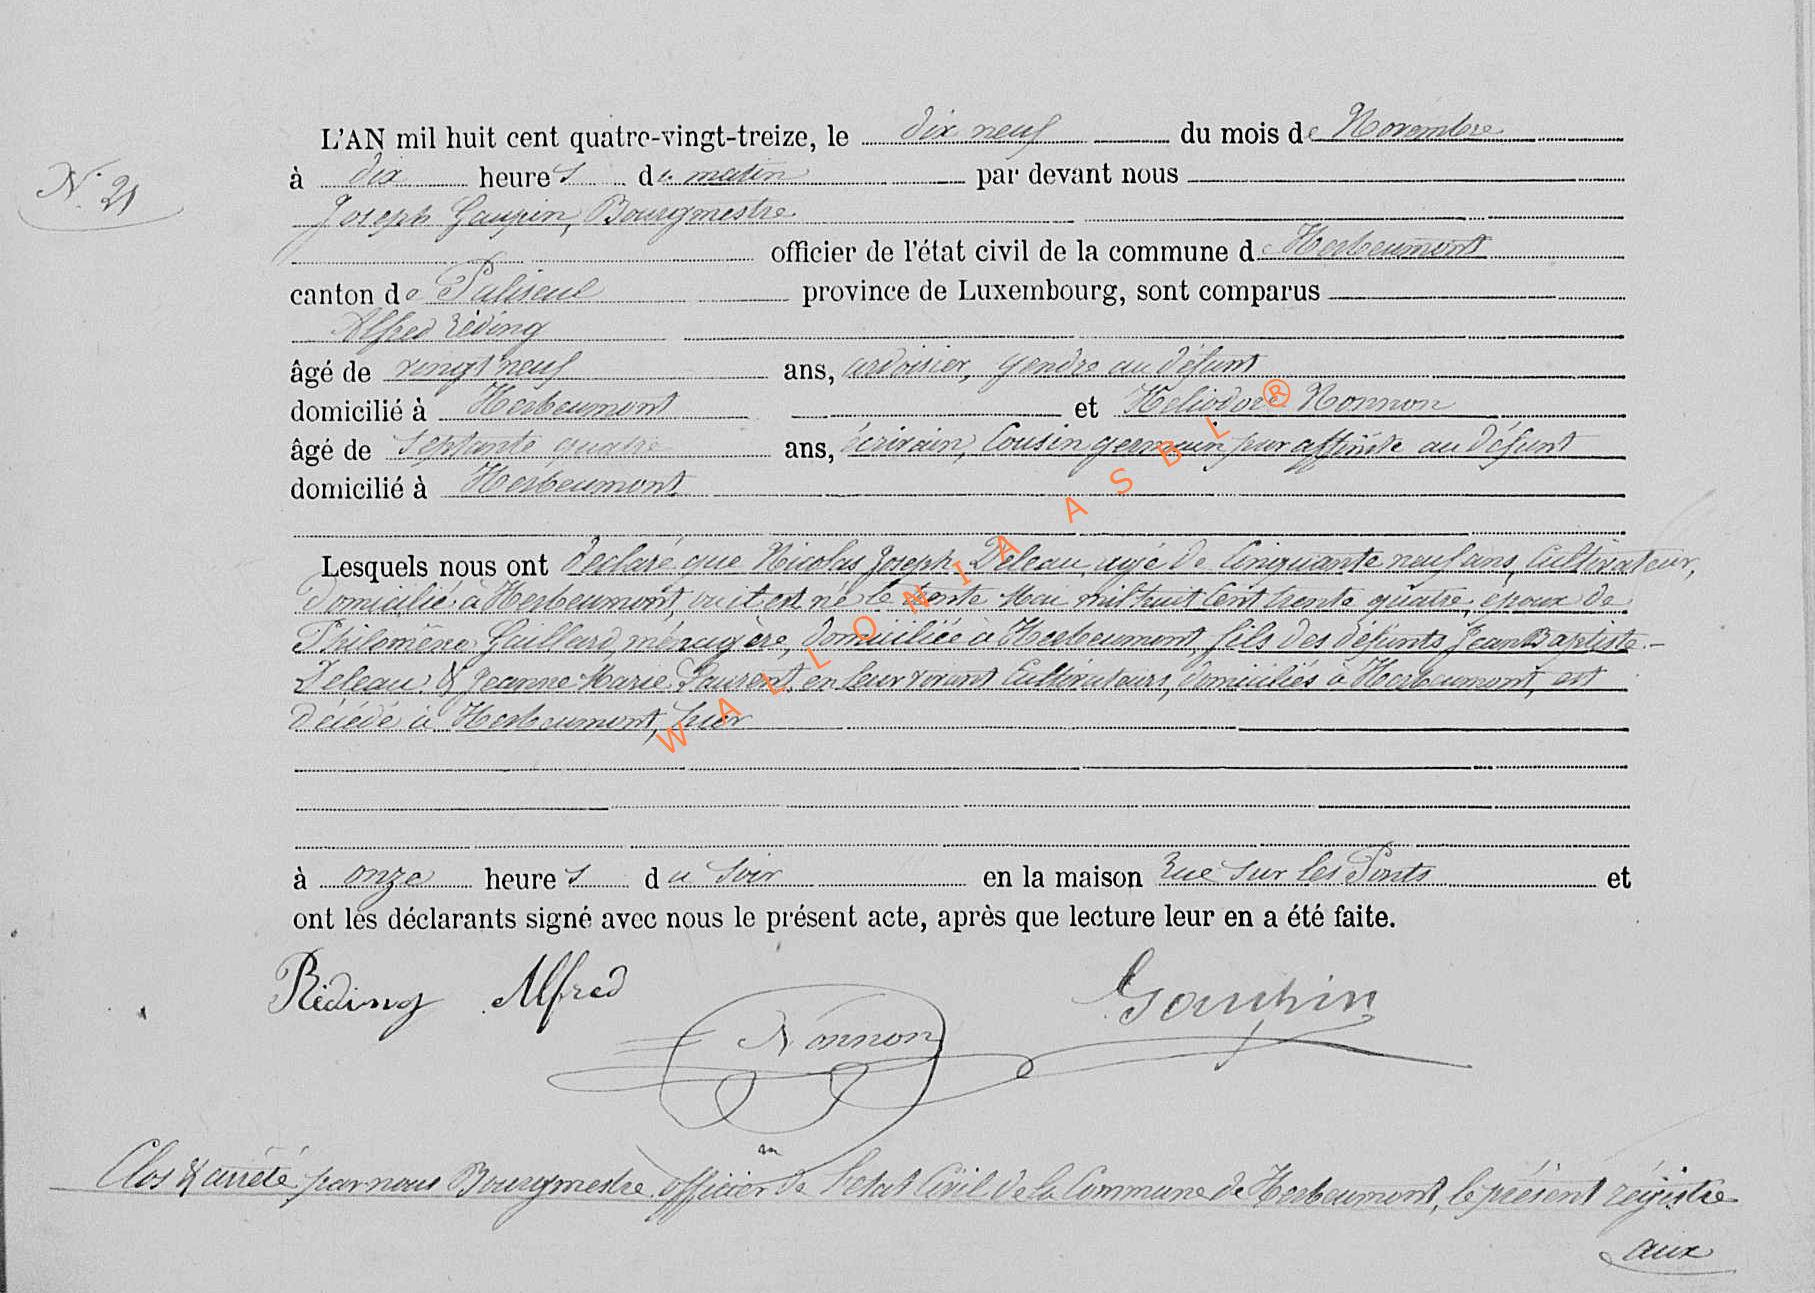 L'AN mil huit cent quatre-vingt-treize, le dix neuf du mois de Novembre
N.° 21
à dix heures du matin par devant nous
Joseph Goupin, Bourgmestre
officier de l'état civil de la commune de Herbeumont
canton de Paliseul province de Luxembourg, sont comparus
Alfred Réding
âgé de vingt neuf ans, ardoisier, gendre au défunt
domicilié à Herbeumont et Héliodore Nonnon
âgé de septante quatre ans, écrivain, Cousin germain par affinité au défunt
domicilié à Herbeumont
Lesquels nous ont déclaré que Nicolas Joseph Deleau, agé de Cinquante neuf ans, Cultivateur,
domicilié à Herbeumont, où il est né le trente Mai mil huit Cent trente quatre, époux de
Philomène Gaillard, ménagère, domiciliée à Herbeumont, fils des défunts Jean Baptiste
Deleau & Jeanne Marie Laurent, en leur vivant Cultivateurs, domiciliés à Herbeumont, est
décédé à Herbeumont, hier
à onze heures du soir en la maison Rue sur les Ponts et
ont les déclarants signé avec nous le présent acte, après que lecture leur en a été faite.
Réding Alfred
Nonnon
Goupin
Clos & arrêté par nous Bourgmestre officier de l'etat Civil de la Commune de Herbeumont, le présent régistre
aux
WALLONIA ASBL ®